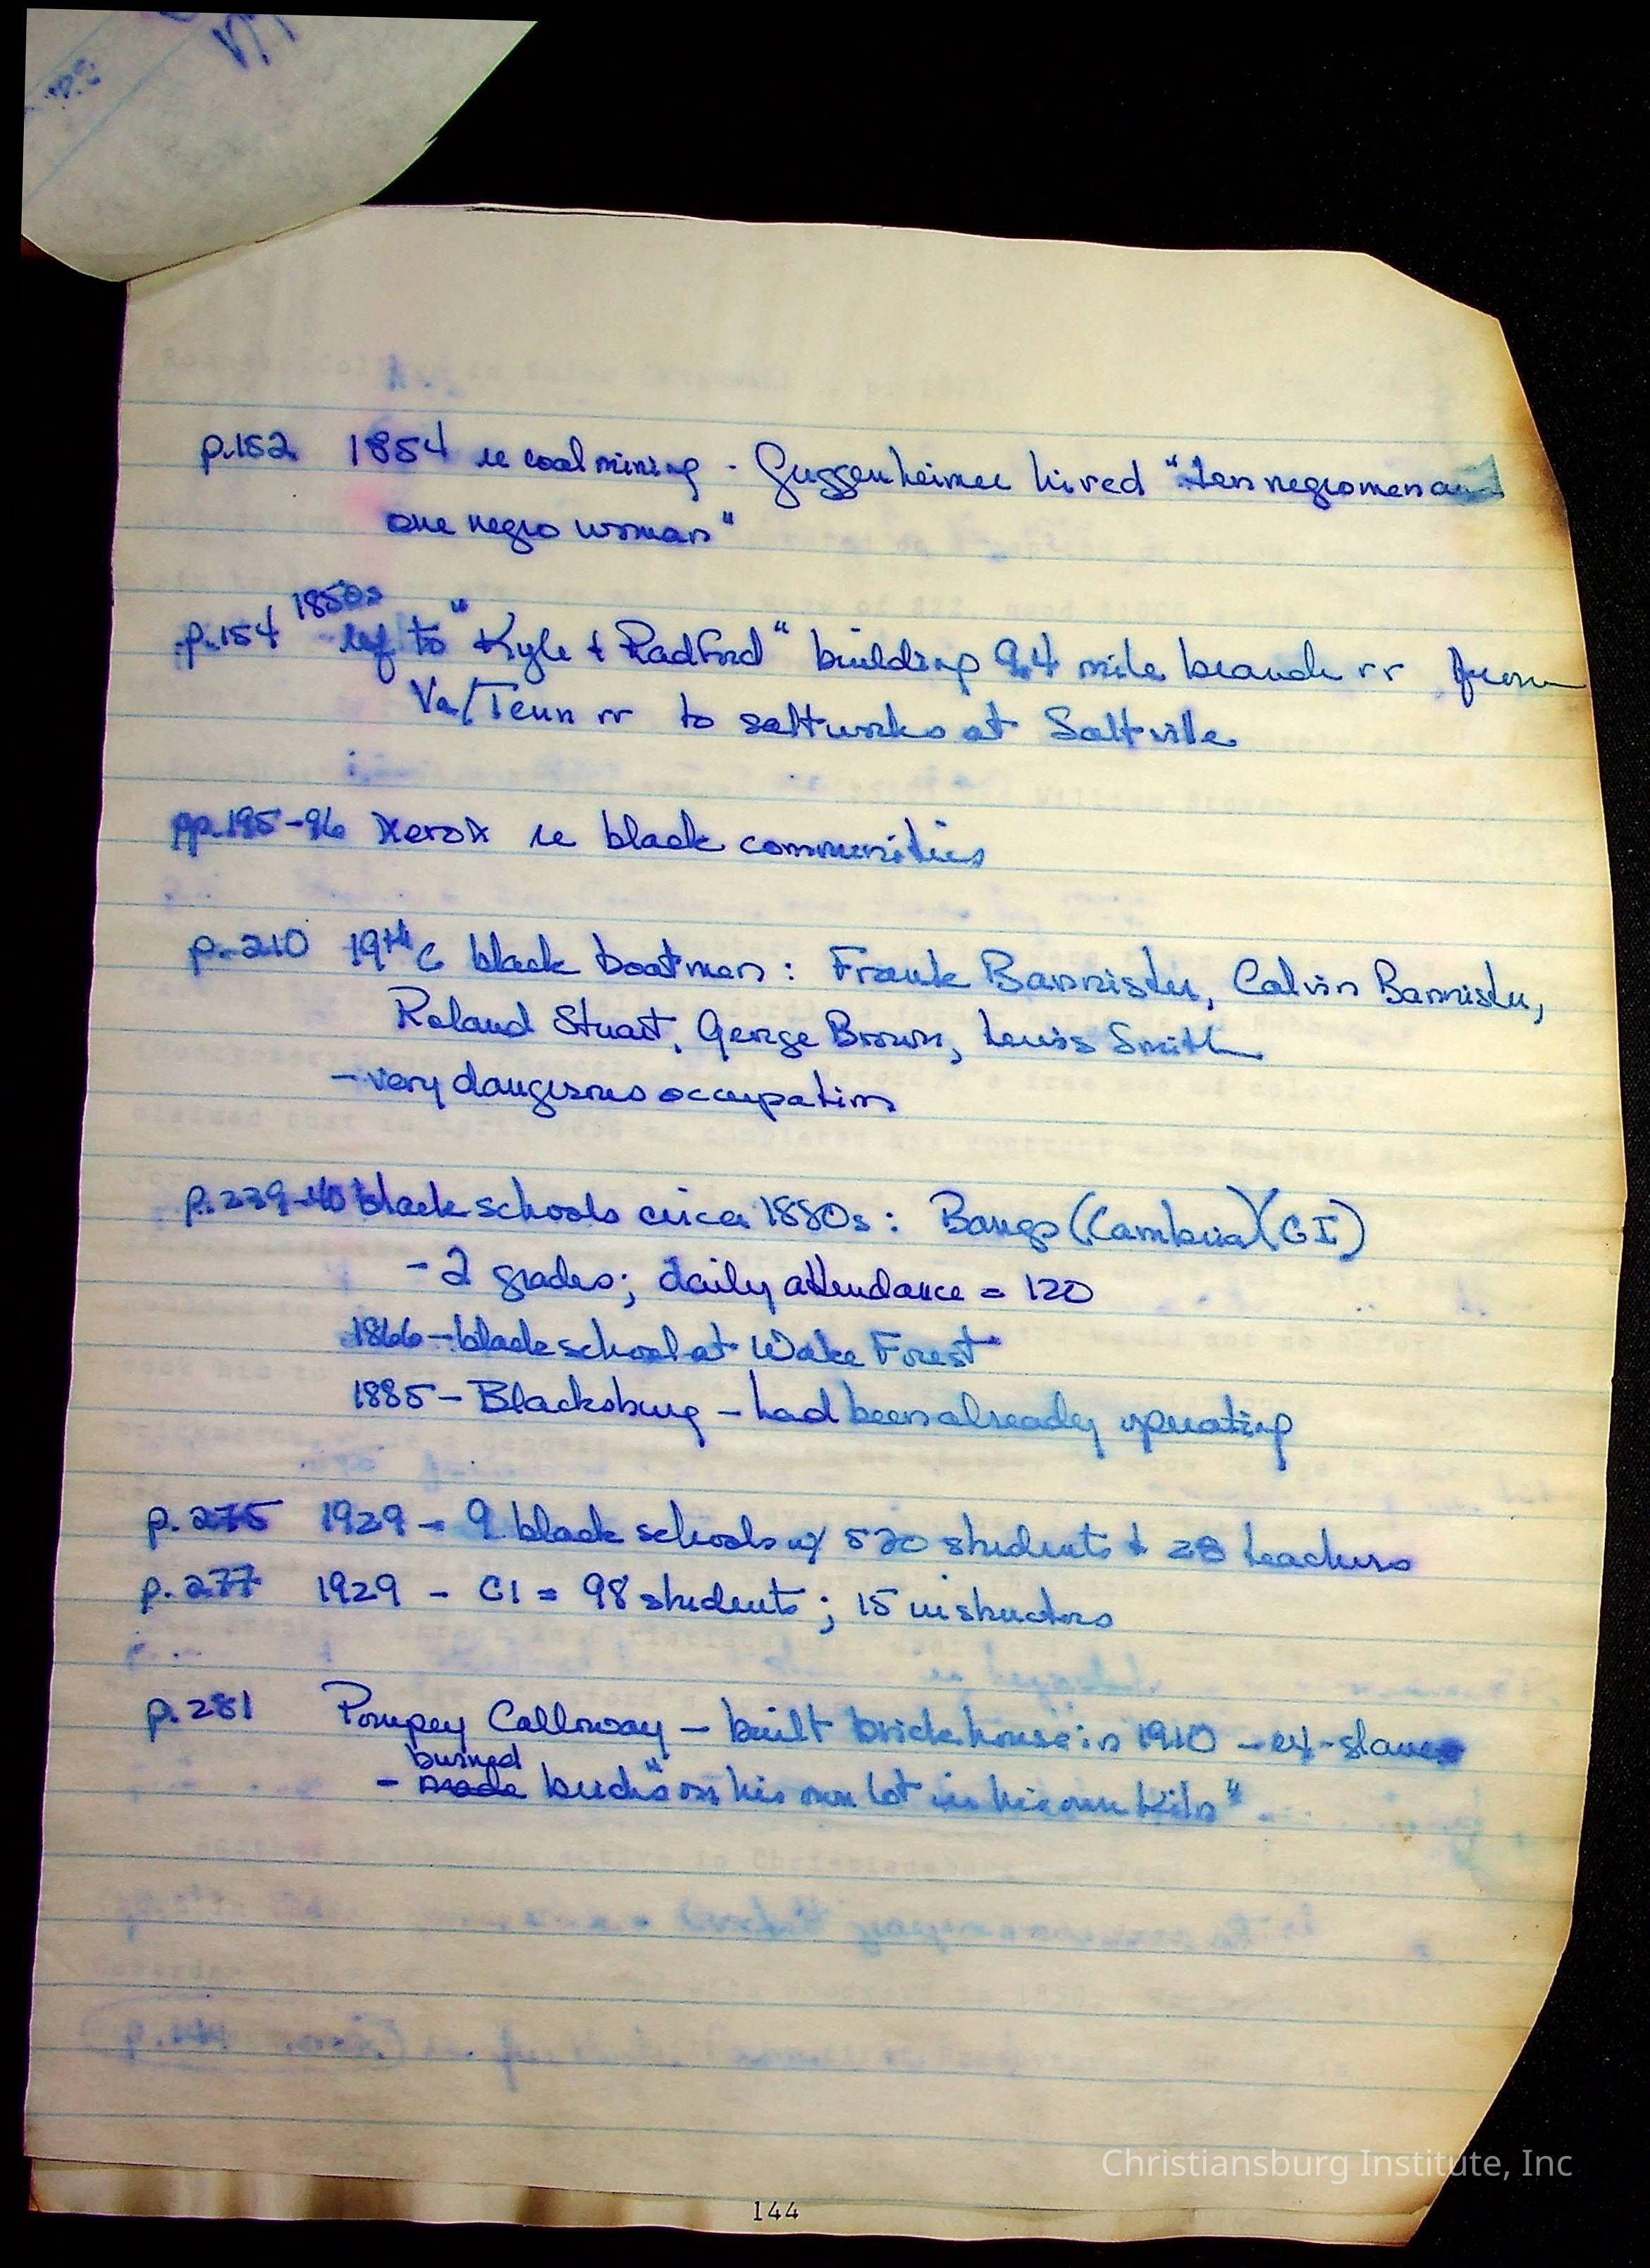 p.152 1854 re coal mining - Guggenheimer hired "ten negro men and
one negro woman"
1850s
p.154 - ref to "Kyle & Radford" building 9.4 mile branch rr from
Va/Tenn rr to saltworks at Saltville
pp.195-96 Xerox re black communities
p.210 19th C black boatmen: Frank Bannister, Calvin Bannister,
Roland Stuart, George Brown, Lewis Smith
- very dangerous occupation
p.239-40 black schools circa 1880s: Bangs (Cambria) (CI)
- 2 grades; daily attendance = 120
1866 - black school at Wake Forest
1885 - Blacksburg - had been already operating
p. 275 1929 - 9 black schools w/ 520 students & 28 teachers
p. 277 1929 - CI = 98 students; 15 instructors
p. 281 Pompey Calloway - built brick house in 1910 - ex-slave
burned
- made bricks "on his own lot in his own kiln"
Christiansburg Institute, Inc
144